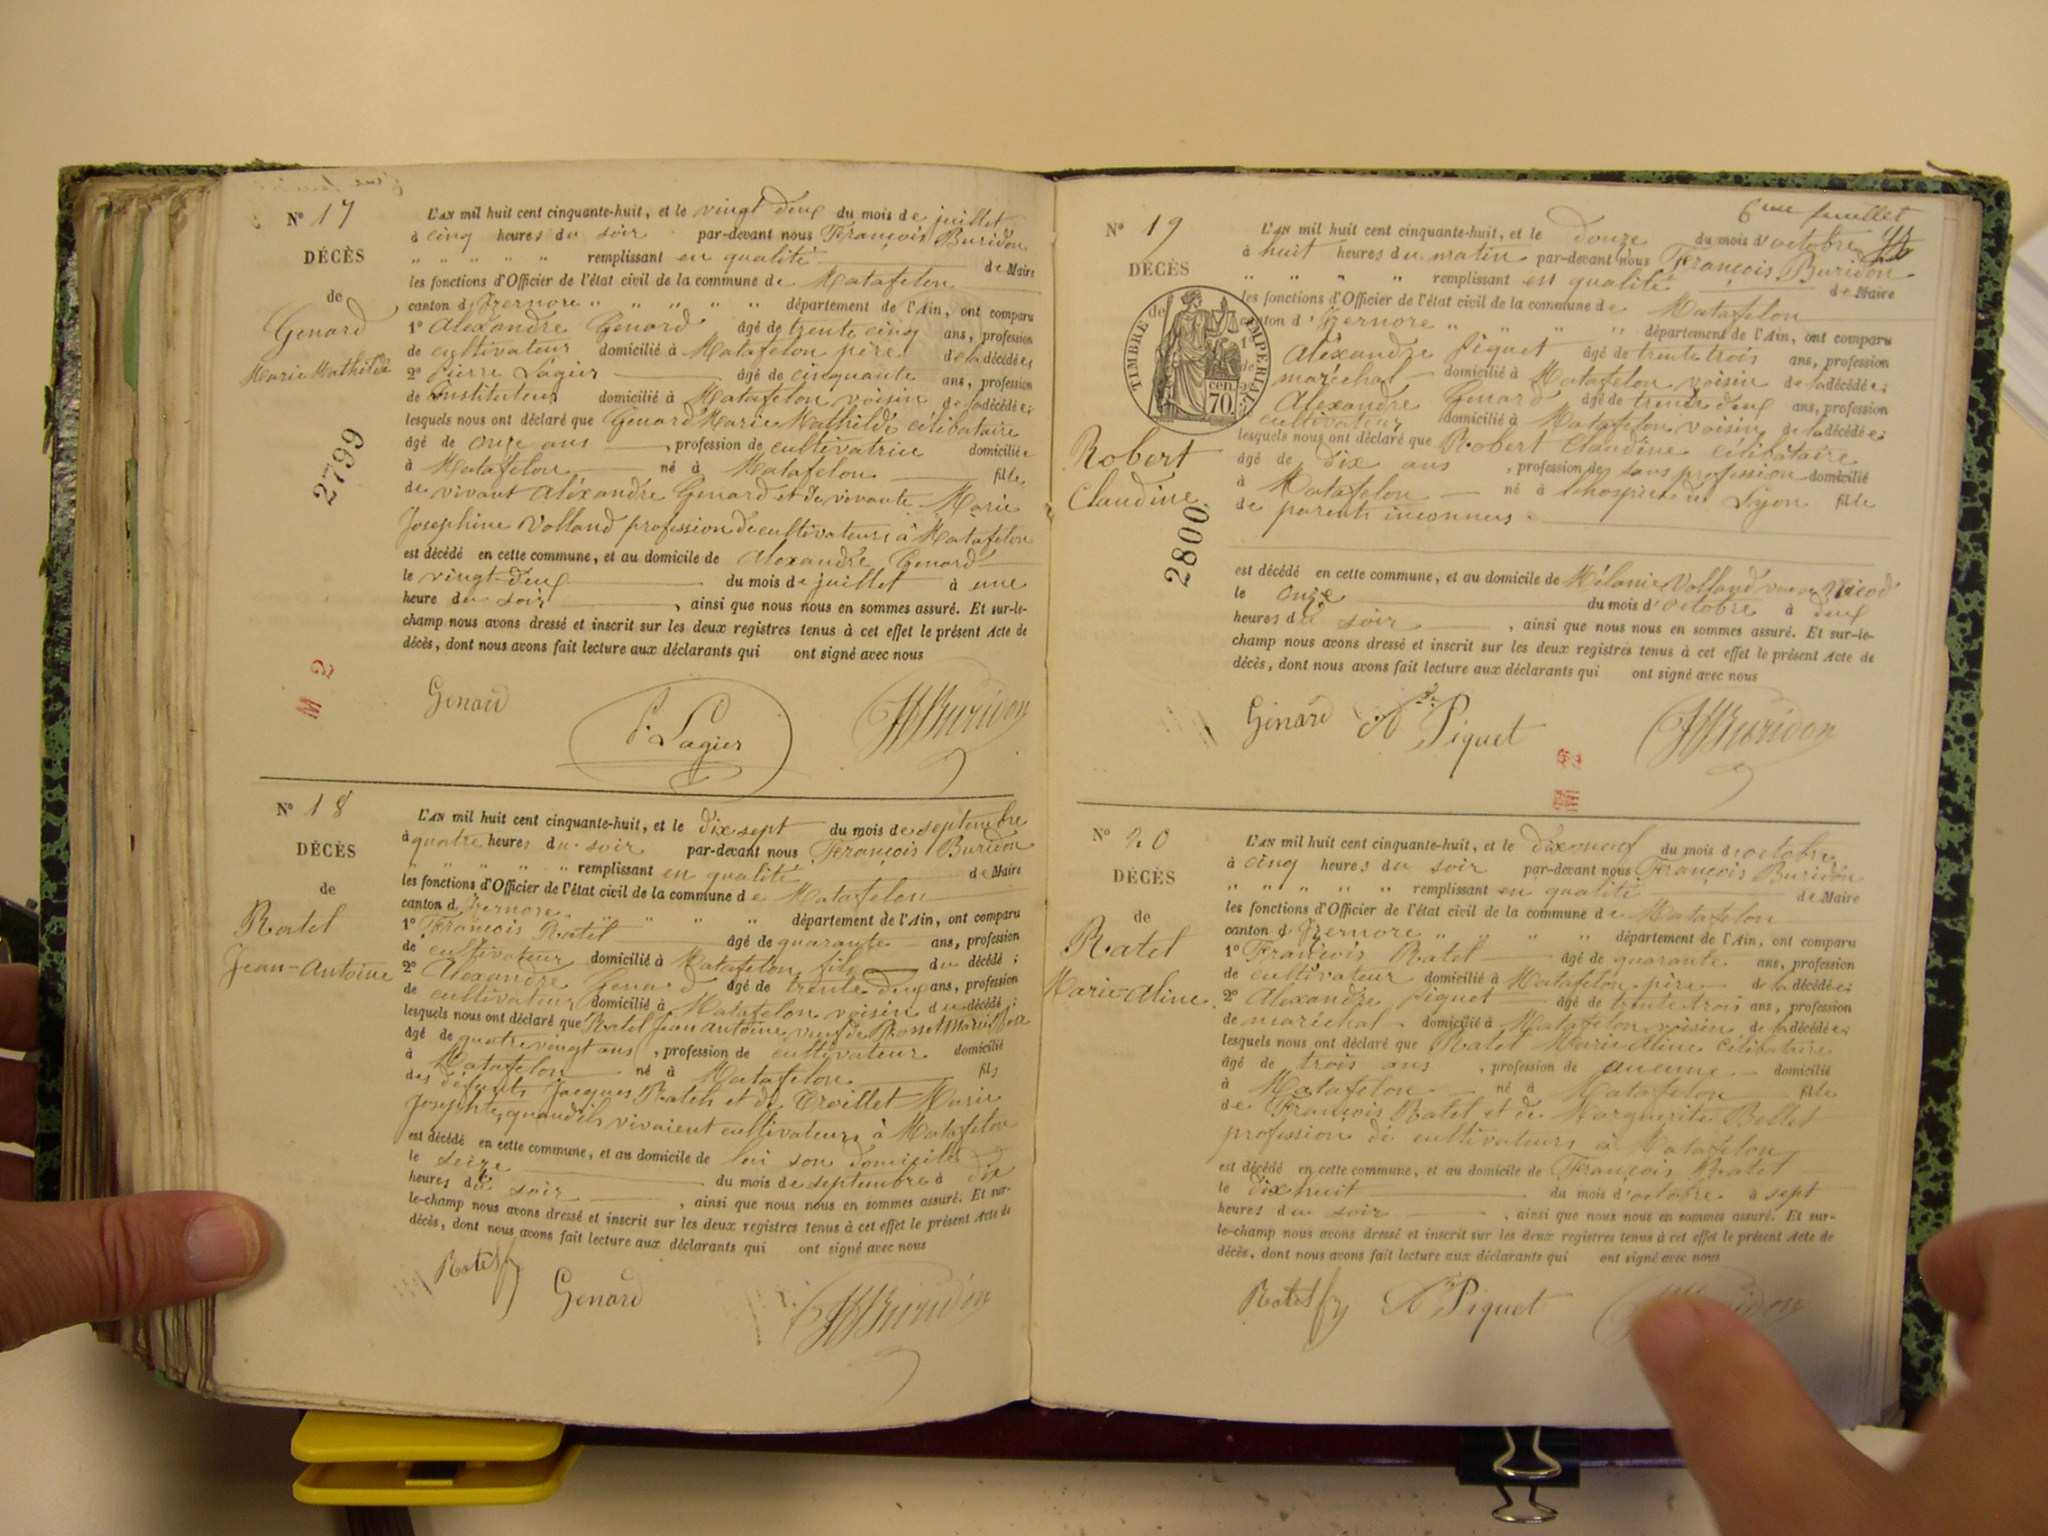 N° 17
DÉCÈS
de
Genard
Marie Mathilde
2799
L'AN mil huit cent cinquante-huit, et le vingt deux du mois de juillet
à cinq heures du soir par-devant nous François Buridon
" " " " " remplissant en qualité de Maire
les fonctions d'Officier de l'état civil de la commune de Matafelon
canton d'Izernore " " " " " département de l'Ain, ont comparu
1° Alexandre Genard âgé de trente cinq ans, profession
de cultivateur domicilié à Matafelon père de la décédée;
2° Pierre Lagier âgé de cinquante ans, profession
de Instituteur domicilié à Matafelon voisin de la décédée;
lesquels nous ont déclaré que Genard Marie Mathilde célibataire
âgé de onze ans, profession de cultivatrice domiciliée
à Matafelon né à Matafelon fille
de vivant Alexandre Genard et de vivante Marie
Josephine Volland profession de cultivateurs à Matafelon
est décédé en cette commune, et au domicile de Alexandre Genard
le vingt-deux du mois de juillet à une
heure du soir, ainsi que nous nous en sommes assuré. Et sur-le-
champ nous avons dressé et inscrit sur les deux registres tenus à cet effet le présent Acte de
décès, dont nous avons fait lecture aux déclarants qui ont signé avec nous
Genard P. Lagier Buridon
N° 18
DÉCÈS
de
Ratel
Jean-Antoine
L'AN mil huit cent cinquante-huit, et le dix sept du mois de septembre
à quatre heures du soir par-devant nous François Buridon
" " " " " remplissant en qualité de Maire
les fonctions d'Officier de l'état civil de la commune de Matafelon
canton d'Izernore " " " " département de l'Ain, ont comparu
1° François Ratel âgé de quarante ans, profession
de cultivateur domicilié à Matafelon fils du décédé;
2° Alexandre Genard âgé de trente deux ans, profession
de cultivateur domicilié à Matafelon voisin du décédé;
lesquels nous ont déclaré que Ratel Jean Antoine veuf de Rosset Marie
âgé de quatre vingt ans, profession de cultivateur domicilié
à Matafelon né à Matafelon fils
des défunts Jacques Ratel et de Troillet Marie
Josephte, quand ils vivaient cultivateurs à Matafelon
est décédé en cette commune, et au domicile de lui son domicile
le seize du mois de septembre à dix
heures du soir, ainsi que nous nous en sommes assuré. Et sur-
le-champ nous avons dressé et inscrit sur les deux registres tenus à cet effet le présent Acte de
décès, dont nous avons fait lecture aux déclarants qui ont signé avec nous
Ratel Genard Buridon
6me feuillet
N° 19
DÉCÈS
de
TIMBRE IMPERIAL
70 cen.
Robert
Claudine
2800
L'AN mil huit cent cinquante-huit, et le douze du mois d'octobre
à huit heures du matin par-devant nous François Buridon
" " " " remplissant en qualité de Maire
les fonctions d'Officier de l'état civil de la commune de Matafelon
canton d'Izernore " " " " département de l'Ain, ont comparu
1° Alexandre Piquet âgé de trente trois ans, profession
de maréchal domicilié à Matafelon voisin de la décédée;
2° Alexandre Genard âgé de trente deux ans, profession
cultivateur domicilié à Matafelon voisin de la décédée;
lesquels nous ont déclaré que Robert Claudine célibataire
âgé de dix ans, profession de sans profession domicilié
à Matafelon né à lhospice de Lyon fille
de parents inconnus.
est décédé en cette commune, et au domicile de Mélanie Volland veuve Nicod
le onze du mois d'octobre à deux
heures du soir, ainsi que nous nous en sommes assuré. Et sur-le-
champ nous avons dressé et inscrit sur les deux registres tenus à cet effet le présent Acte de
décès, dont nous avons fait lecture aux déclarants qui ont signé avec nous
Genard Piquet Buridon
N° 20
DÉCÈS
de
Ratel
Marie-Aline
L'AN mil huit cent cinquante-huit, et le dixneuf du mois d'octobre
à cinq heures du soir par-devant nous François Buridon
" " " " " remplissant en qualité de Maire
les fonctions d'Officier de l'état civil de la commune de Matafelon
canton d'Izernore " " " " département de l'Ain, ont comparu
1° François Ratel âgé de quarante ans, profession
de cultivateur domicilié à Matafelon père de la décédée;
2° Alexandre Piquet âgé de trente trois ans, profession
de maréchal domicilié à Matafelon voisin de la décédée;
lesquels nous ont déclaré que Ratel Marie Aline célibataire
âgé de trois ans, profession de aucune domicilié
à Matafelon né à Matafelon fille
de François Ratel et de Marguerite Bollet
profession de cultivateurs à Matafelon
est décédé en cette commune, et au domicile de François Ratel
le dix huit du mois d'octobre à sept
heures du soir, ainsi que nous nous en sommes assuré. Et sur-
le-champ nous avons dressé et inscrit sur les deux registres tenus à cet effet le présent Acte de
décès, dont nous avons fait lecture aux déclarants qui ont signé avec nous
Ratel Piquet